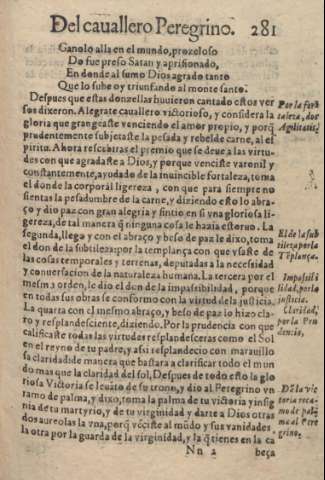 Del cauallero Peregrino. 281
Ganolo alla en el mundo, prozeloso
Do fue preso Satan y aprisionado,
En donde al sumo Dios agrado tanto
Que lo sube oy triunfando al monte santo.
Despues que estas donzellas huuieron cantado estos ver
sos dixeron. Alegrate cauallero victorioso, y considera la
gloria que grangeaste venciendo el amor propio, y porq̃
prudentemente subjetaste la pesada y rebelde carne, al es
piritu. Ahora rescebiras el premio que se deue a las virtu-
des con que agradaste a Dios, y porque venciste varonil y
constantemente, ayudado de la inuincible fortaleza, toma
el don de la corporal ligereza, con que para siempre no
sientas la pesadumbre de la carne, y diziendo esto lo abra-
ço y dio paz con gran alegria y sintio en si vna gloriosa li-
gereza, de tal manera q̃ ninguna cosa le hazia estoruo. La
segunda, llega y con el abraço y beso de paz le dixo, toma
el don de la subtileza: por la templança con que vsaste de
las cosas temporales y terrenas, deputadas a la necesidad
y conuersacion de la naturaleza humana. La tercera por el
mesmo orden, le dio el don de la impassibilidad, porque
en todas sus obras se conformo con la virtud de la justicia.
La quarta con el mesmo abraço, y beso de paz lo hizo cla-
ro y resplandesciente, diziendo. Por la prudencia con que
calificaste todas las virtudes resplandesceras como el Sol
en el reyno de tu padre, y assi resplandecio con marauillo
sa claridad de manera que bastara a clarificar todo el mun
do mas que la claridad del sol. Despues de todo esto la glo
riosa Victoria se leuãto de su trono, y dio al Peregrino vn
ramo de palma, y dixo, toma la palma de tu victoria y insig
nia de tu martyrio, y de tu virginidad y darte a Dios otras
dos aureolas la vna, porq̃ vẽciste al mũdo y sus vanidades
la otra por la guarda de la virginidad, y la q̃ tienes en la ca
Nn 2 beça
Por la fort
taleza, don
Agilitatis.
El de la sub
tileza, por la
Tẽplança.
Impassibi
lidad, por la
justicia.
Claridad,
por la Pru
dencia.
De la vic
toria reca
mo de pal
ma al Pere
grino.